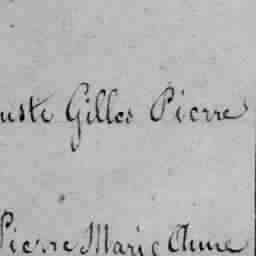 uste Gilles Pierre
Pierre Marie Anne